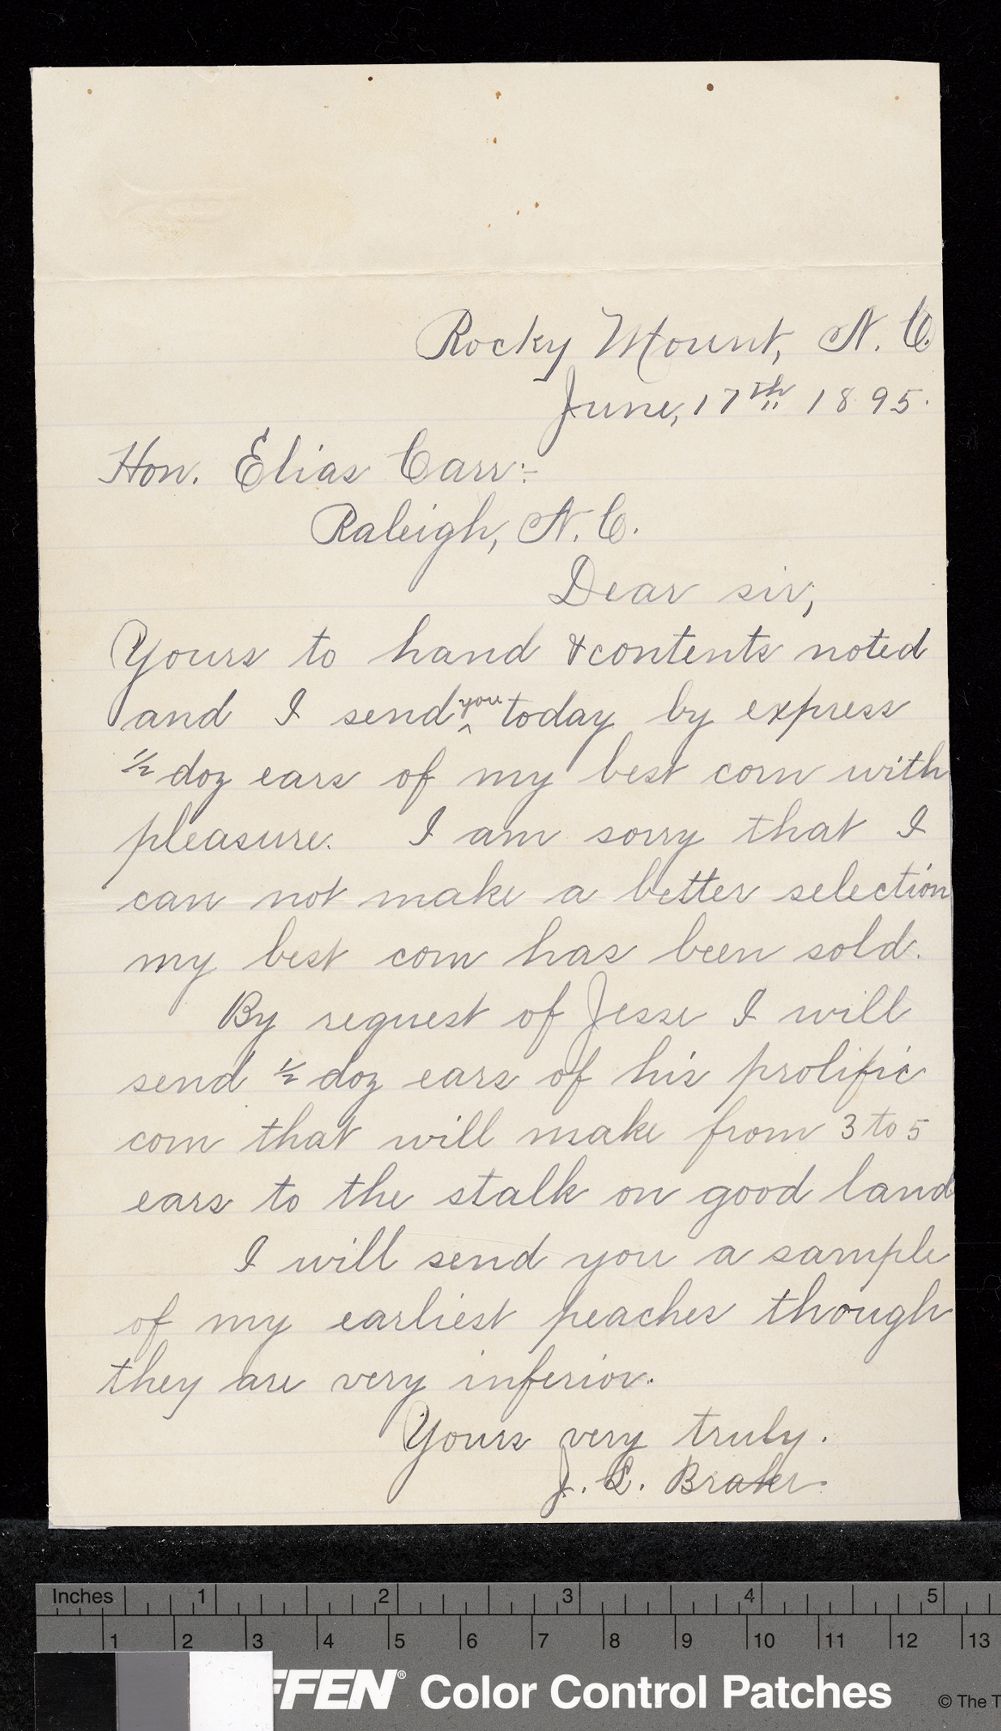 Rocky Mount, N. C.
June, 17th 1895.
Hon. Elias Carr:-
Raleigh, N. C.
Dear sir;
Yours to hand & contents noted
and I send ^you today by express
1/2 doz ears of my best corn with
pleasure. I am sorry that I
can not make a better selection
my best corn has been sold.
By request of Jesse I will
send 1/2 doz ears of his prolific
corn that will make from 3 to 5
ears to the stalk on good land
I will send you a sample
of my earliest peaches though
they are very inferior.
Yours very truly.
J. L. Braker.
Inches 1 2 3 4 5
1 2 3 4 5 6 7 8 9 10 11 12 13
FFEN® Color Control Patches © The T